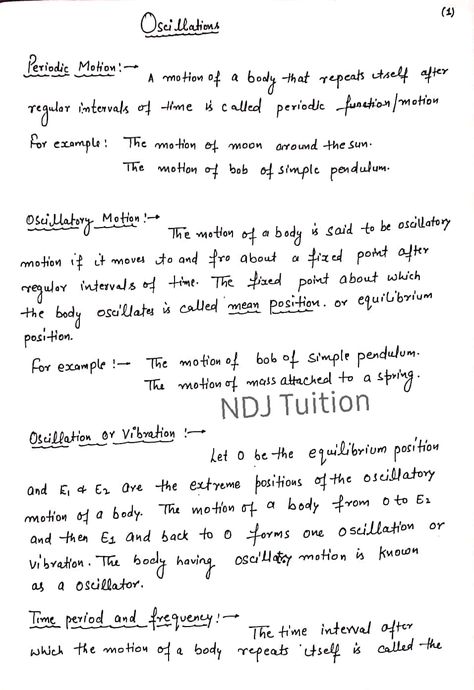 (1)
Oscillations
Periodic Motion:→ A motion of a body that repeats itself after
regular intervals of time is called periodic function/motion
For example: The motion of moon around the sun.
The motion of bob of simple pendulum.
Oscillatory Motion:→ The motion of a body is said to be oscillatory
motion if it moves to and fro about a fixed point after
regular intervals of time. The fixed point about which
the body oscillates is called mean position. or equilibrium
position.
For example :→ The motion of bob of simple pendulum.
The motion of mass attached to a spring.
NDJ Tuition
Oscillation or Vibration :→
Let O be the equilibrium position
and E1 & E2 are the extreme positions of the oscillatory
motion of a body. The motion of a body from O to E2
and then E1 and back to O forms one oscillation or
vibration. The body having oscillatory motion is known
as a oscillator.
Time period and frequency:→ The time interval after
which the motion of a body repeats itself is called the